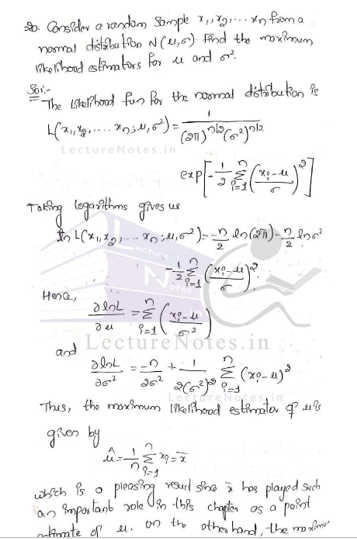 20. Consider a random Sample x₁, x₂, ... xn from a
normal distribution N(μ, σ) Find the maximum
likelihood estimators for μ and σ².
Sol:-
The Likelihood fun for the normal distribution is
L(x₁, x₂, .... xn; μ, σ²) = 1 / ((2π)^(n/2) (σ²)^(n/2))
LectureNotes.in
exp[-1/2 Σ_{i=1}^{n} ((xi-μ)/σ)²]
Taking logarithms gives us
ln L(x₁, x₂, ... xn; μ, σ²) = -n/2 ln(2π) - n/2 lnσ²
-1/2 Σ_{i=1}^{n} ((xi-μ)/σ)²
Hence,
∂lnL/∂μ = Σ_{i=1}^{n} ((xi-μ)/σ²)
LectureNotes.in
and
∂lnL/∂σ² = -n/2σ² + 1/2(σ²)² Σ_{i=1}^{n} (xi-μ)²
Thus, the maximum likelihood estimator of μ is
given by
μ̂ = 1/n Σ_{i=1}^{n} xi = x̄
LectureNotes.in
which is a pleasing result since x̄ has played such
an important role in this chapter as a point
estimate of μ. on the other hand, the maximum